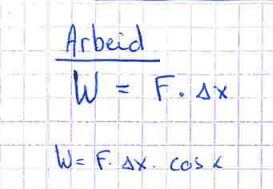 Arbeid
W = F. Δx
W = F. Δx. cos α